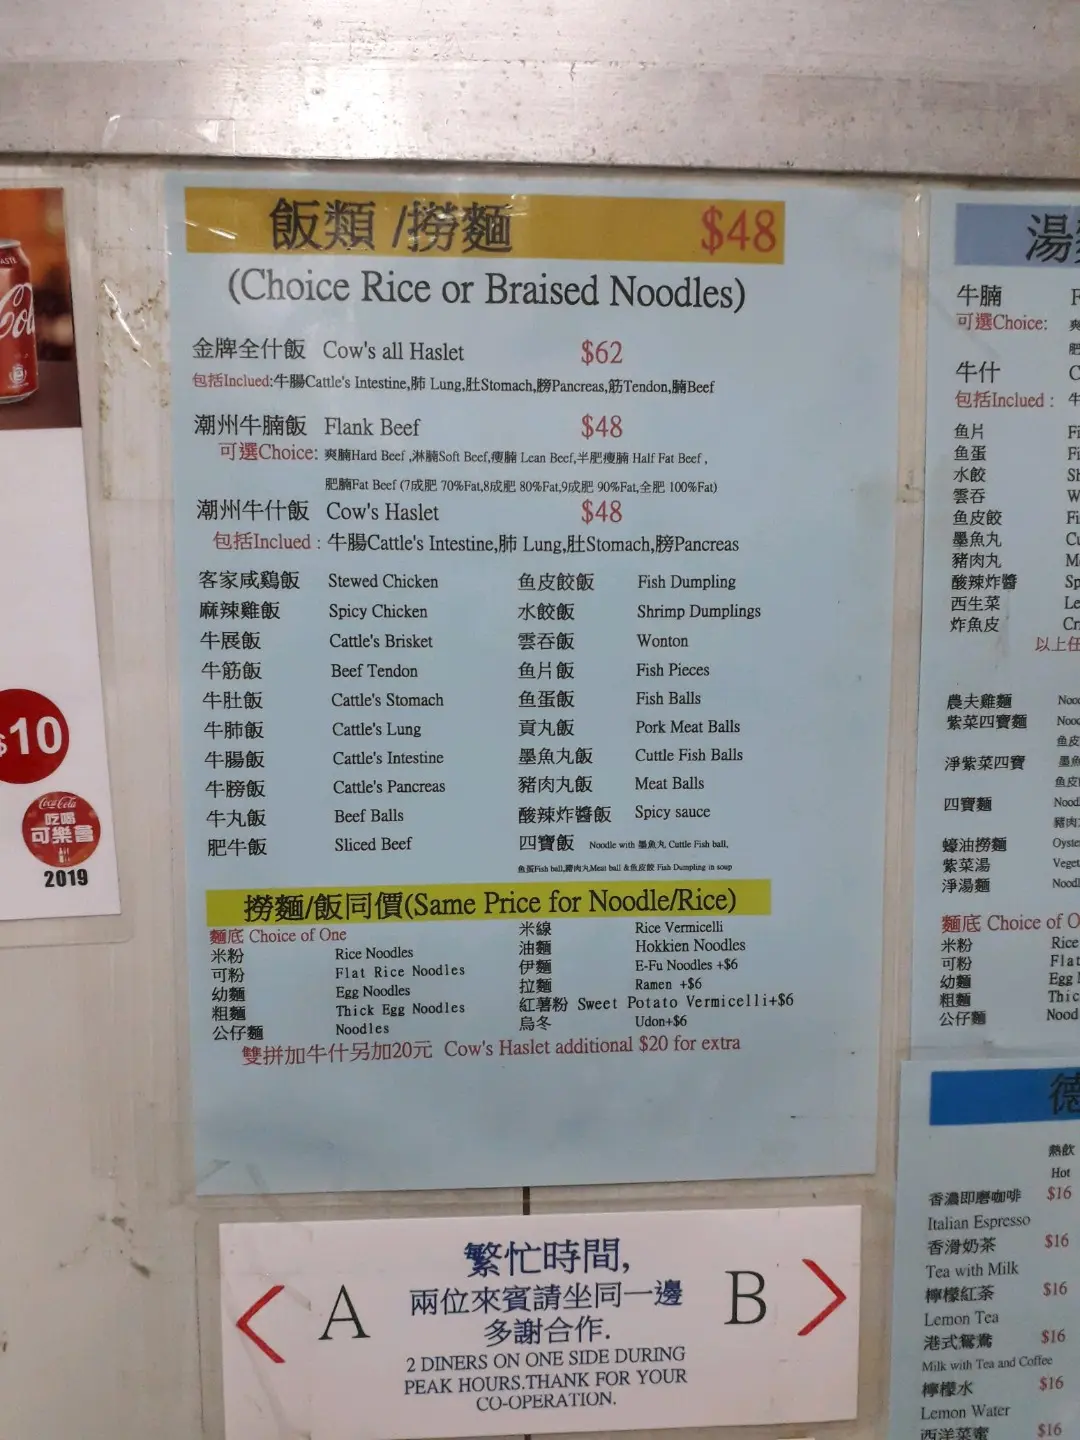 飯類 /撈麵 $48
(Choice Rice or Braised Noodles)
金牌全什飯 Cow's all Haslet $62
包括Inclued:牛腸Cattle's Intestine,肺 Lung,肚Stomach,膀Pancreas,筋Tendon,腩Beef
潮州牛腩飯 Flank Beef $48
可選Choice: 爽腩Hard Beef ,淋腩Soft Beef,瘦腩 Lean Beef,半肥瘦腩 Half Fat Beef ,
肥腩Fat Beef (7成肥 70%Fat,8成肥 80%Fat,9成肥 90%Fat,全肥 100%Fat)
潮州牛什飯 Cow's Haslet $48
包括Inclued : 牛腸Cattle's Intestine,肺 Lung,肚Stomach,膀Pancreas
客家咸鷄飯 Stewed Chicken 鱼皮餃飯 Fish Dumpling
麻辣雞飯 Spicy Chicken 水餃飯 Shrimp Dumplings
牛展飯 Cattle's Brisket 雲吞飯 Wonton
牛筋飯 Beef Tendon 鱼片飯 Fish Pieces
牛肚飯 Cattle's Stomach 鱼蛋飯 Fish Balls
牛肺飯 Cattle's Lung 貢丸飯 Pork Meat Balls
牛腸飯 Cattle's Intestine 墨魚丸飯 Cuttle Fish Balls
牛膀飯 Cattle's Pancreas 豬肉丸飯 Meat Balls
牛丸飯 Beef Balls 酸辣炸醬飯 Spicy sauce
肥牛飯 Sliced Beef 四寶飯 Noodle with 墨魚丸 Cuttle Fish ball,
鱼蛋Fish ball,豬肉丸Meat ball &鱼皮餃 Fish Dumping in soup
撈麵/飯同價(Same Price for Noodle/Rice)
麵底 Choice of One
米粉 Rice Noodles
可粉 Flat Rice Noodles
幼麵 Egg Noodles
粗麵 Thick Egg Noodles
公仔麵 Noodles
米線 Rice Vermicelli
油麵 Hokkien Noodles
伊麵 E-Fu Noodles +$6
拉麵 Ramen +$6
紅薯粉 Sweet Potato Vermicelli+$6
烏冬 Udon+$6
雙拼加牛什另加20元 Cow's Haslet additional $20 for extra
繁忙時間,
兩位來賓請坐同一邊
多謝合作.
< A B >
2 DINERS ON ONE SIDE DURING
PEAK HOURS.THANK FOR YOUR
CO-OPERATION.
$10
Coca-Cola
吃喝
可樂會
2019
湯
牛腩
可選Choice:
牛什
包括Inclued :
鱼片
鱼蛋
水餃
雲吞
鱼皮餃
墨魚丸
豬肉丸
酸辣炸醬
西生菜
炸魚皮
以上任
農夫雞麵
紫菜四寶麵
淨紫菜四寶
四寶麵
蠔油撈麵
紫菜湯
淨湯麵
麵底 Choice of O
米粉 Rice
可粉 Flat
幼麵 Egg
粗麵 Thic
公仔麵 Nood
德
熱飲
Hot
香濃即磨咖啡 $16
Italian Espresso
香滑奶茶 $16
Tea with Milk
檸檬紅茶 $16
Lemon Tea
港式鴛鴦 $16
Milk with Tea and Coffee
檸檬水 $16
Lemon Water
西洋菜蜜 $16